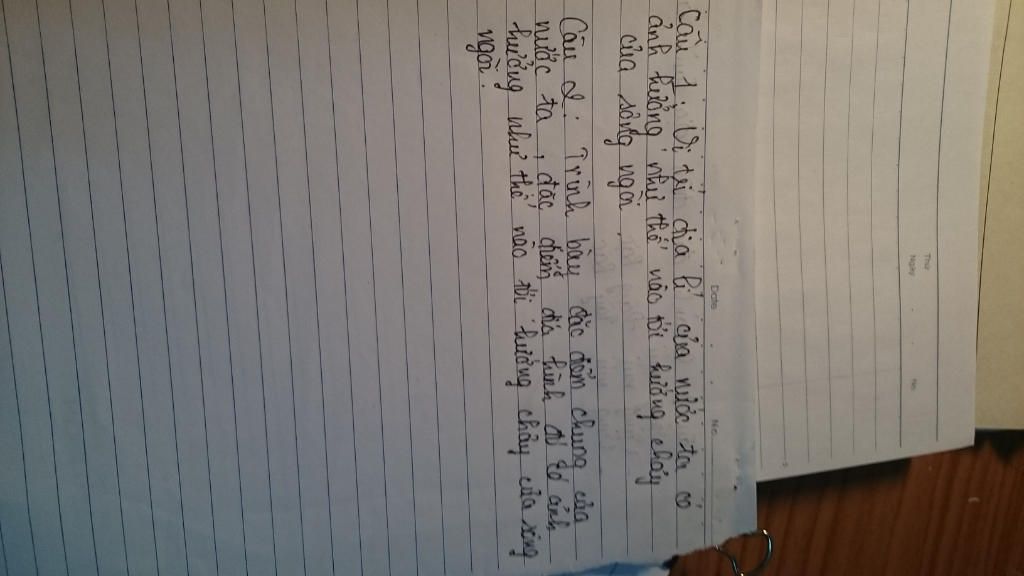 Thứ
Ngày
No.
Date
No.
Câu 1: Vị trí địa lí của nước ta có
ảnh hưởng như thế nào tới hướng chảy
của sông ngòi.
Câu 2: Trình bày đặc điểm chung của
nước ta, đặc điểm địa hình đó có ảnh
hưởng như thế nào tới hướng chảy của sông
ngòi.